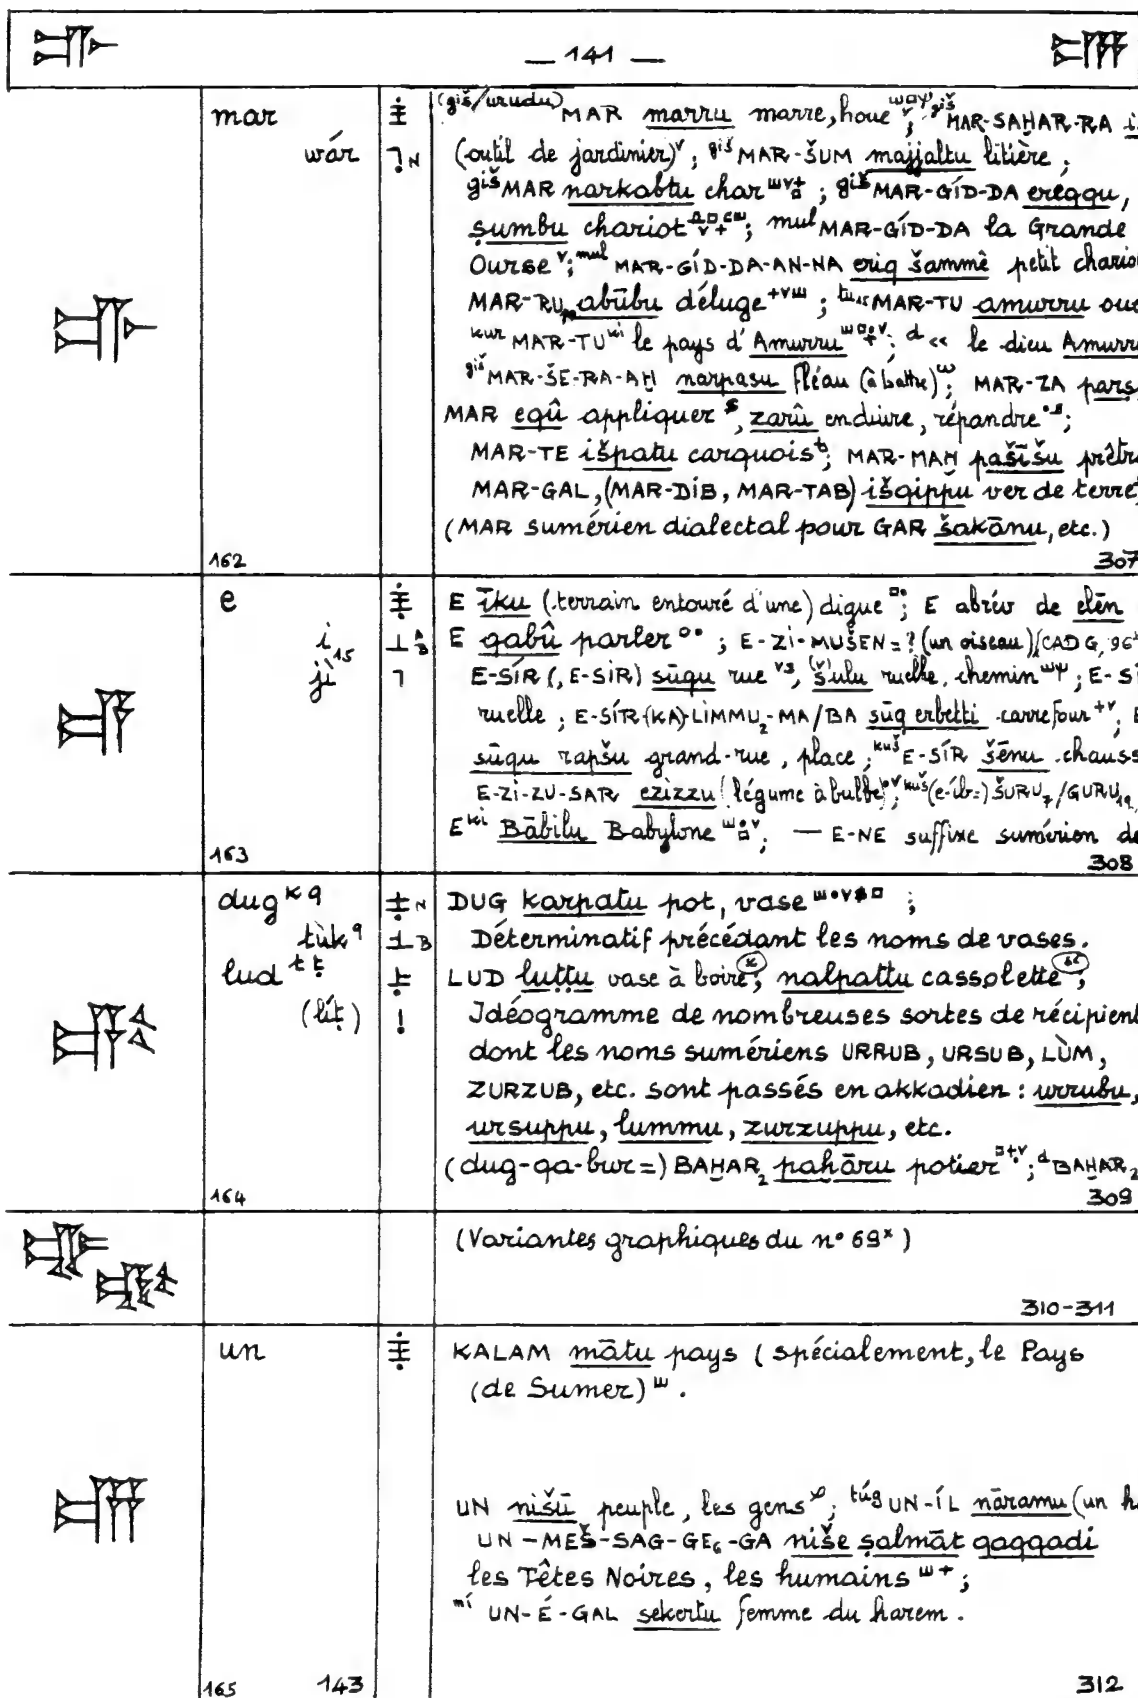 — 141 —
mar (giš/urudu)MAR marru marre, houe ; giš MAR-SAḪAR-RA
wár (outil de jardinier) ; giš MAR-ŠUM majjaltu litière ;
giš MAR narkabtu char ; giš MAR-GÍD-DA ereqqu,
ṣumbu chariot ; mul MAR-GÍD-DA la Grande
Ourse ; mul MAR-GÍD-DA-AN-NA eriq šammê petit chario
MAR-RU₁₀ abūbu déluge ; tu₁₅ MAR-TU amurru oue
kur MAR-TU ki le pays d'Amurru ; d << le dieu Amurru
giš MAR-ŠE-RA-AḪ narpasu fléau (à battre) ; MAR-ZA pars
MAR eqû appliquer , zarû enduire, répandre ;
MAR-TE išpatu carquois ; MAR-MAḪ pašīšu prêtr
MAR-GAL, (MAR-DIB, MAR-TAB) išqippu ver de terre
(MAR sumérien dialectal pour GAR šakānu, etc.)
162 307
e E īku (terrain entouré d'une) digue ; E abrév de elēn
i₁₅ E qabû parler ; E-ZI-MUŠEN = ? (un oiseau) (CAD G, 96
jì E-SÍR (, E-SIR) sūqu rue , (š)ulu ruelle, chemin ; E-S
ruelle ; E-SÍR-(KA)-LÍMMU₂-MA/BA sūq erbetti carrefour ; E
sūqu rapšu grand-rue, place ; kuš E-SÍR šēnu chauss
E-ZI-ZU-SAR ezizzu (légume à bulbe) ; kuš (e-íb=) ŠURU₇/GURU₁₂
E ki Bābilu Babylone ; — E-NE suffixe sumérien de
163 308
dug k q DUG karpatu pot, vase ;
tùk q Déterminatif précédant les noms de vases.
lud t ṭ LUD luṭṭu vase à boire ; nalpattu cassolette ;
(líṭ) Idéogramme de nombreuses sortes de récipient
dont les noms sumériens URRUB, URSUB, LÙM,
ZURZUB, etc. sont passés en akkadien : urrubu,
ursuppu, lummu, zurzuppu, etc.
(dug-qa-bur=) BAḪAR₂ paḫāru potier ; d BAḪAR₂
164 309
(Variantes graphiques du n° 69ˣ)
310-311
un KALAM mātu pays (spécialement, le Pays
(de Sumer) .
UN nišū peuple, les gens ; túg UN-ÍL nāramu (un h
UN-MEŠ-SAG-GE₆-GA niše ṣalmāt qaqqadi
les Têtes Noires, les humains ;
mí UN-É-GAL sekertu femme du harem.
165 143 312